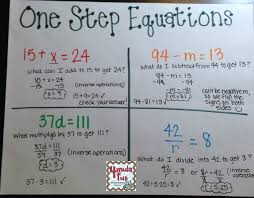 One Step Equations
15 + x = 24
What can I add to 15 to get 24?
15 + x = 24
-15 -15
x = 9
(inverse operations)
15 + 9 = 24 ✓
check your answer
94 - m = 13
What do I subtract from 94 to get 13?
94 - m = 13
-94 -94
-m = -81
m = 81
can't be negative,
so we flip
the signs on
both sides
94 - 81 = 13 ✓
37d = 111
What multiplys by 37 to get 111?
37d = 111
37 37
d = 3
(inverse operations)
37 · 3 = 111 ✓
42/r = 8
What do I divide into 42 to get 8?
42/r = 8 or 8r = 42
8 8
r = 5.25
(inverse operations)
42 ÷ 5.25 = 8 ✓
4mula
Fun